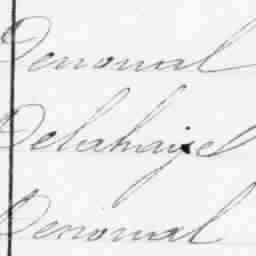 Denoual
Delahaye
Denoual